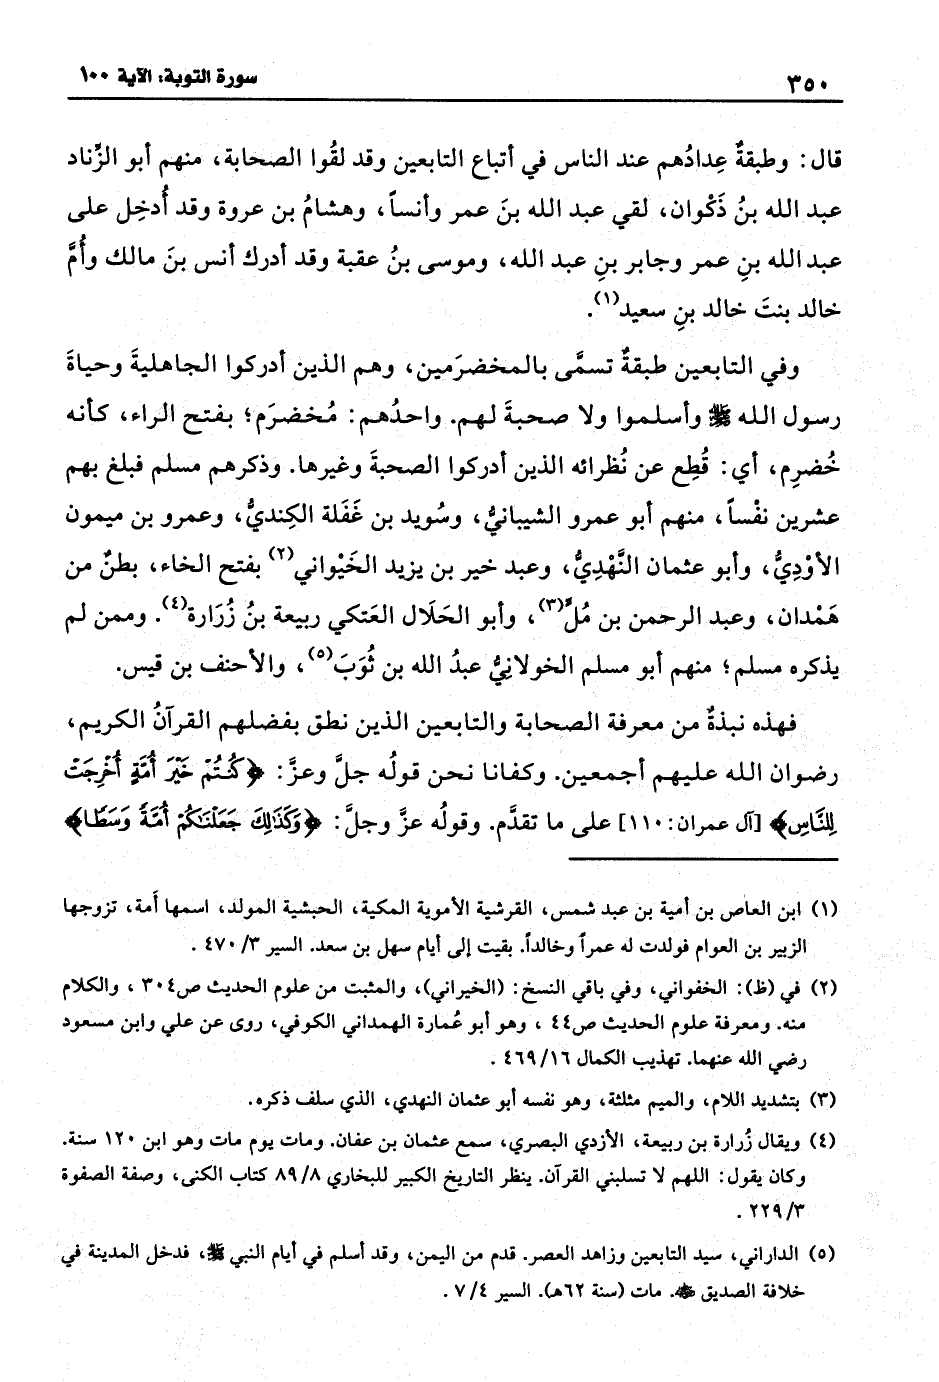 ٣٥٠
سورة التوبة: الآية ١٠٠
قال: وطبقةٌ عِدادُهم عند الناس في أتباع التابعين وقد لقُوا الصحابة، منهم أبو الزِّناد
عبد الله بنُ ذَكْوان، لقي عبد الله بنَ عمر وأنساً، وهشامُ بن عروة وقد أُدخِل على
عبد الله بنِ عمر وجابر بنِ عبد الله، وموسى بنُ عقبة وقد أدرك أنس بنَ مالك وأُمَّ
خالد بنتَ خالد بنِ سعيد(١).
وفي التابعين طبقةٌ تسمَّى بالمخضرَمين، وهم الذين أدركوا الجاهليةَ وحياةَ
رسول الله ﷺ وأسلموا ولا صحبةَ لهم. واحدُهم: مُخضرَم؛ بفتح الراء، كأنه
خُضرِم، أي: قُطِع عن نُظرائه الذين أدركوا الصحبةَ وغيرها. وذكرهم مسلم فبلغ بهم
عشرين نفْساً، منهم أبو عمرو الشيبانيُّ، وسُويد بن غَفَلة الكِنديُّ، وعمرو بن ميمون
الأوْديُّ، وأبو عثمان النَّهْدِيُّ، وعبد خير بن يزيد الخَيْواني(٢) بفتح الخاء، بطنٌ من
هَمْدان، وعبد الرحمن بن مُلّ(٣)، وأبو الحَلَال العَتكي ربيعة بنُ زُرَارة(٤). وممن لم
يذكره مسلم؛ منهم أبو مسلم الخولانِيُّ عبدُ الله بن ثُوَبَ(٥)، والأحنف بن قيس.
فهذه نبذةٌ من معرفة الصحابة والتابعين الذين نطق بفضلهم القرآنُ الكريم،
رضوان الله عليهم أجمعين. وكفانا نحن قولُه جلَّ وعزَّ: ﴿كُنتُمْ خَيْرَ أُمَّةٍ أُخْرِجَتْ
لِلنَّاسِ﴾ [آل عمران: ١١٠] على ما تقدَّم. وقولُه عزَّ وجلَّ: ﴿وَكَذَٰلِكَ جَعَلْنَٰكُمْ أُمَّةً وَسَطًا﴾
(١) ابن العاص بن أمية بن عبد شمس، القرشية الأموية المكية، الحبشية المولد، اسمها أَمة، تزوجها
الزبير بن العوام فولدت له عمراً وخالداً. بقيت إلى أيام سهل بن سعد. السير ٣/ ٤٧٠ .
(٢) في (ظ): الخفواني، وفي باقي النسخ: (الخيراني)، والمثبت من علوم الحديث ص٣٠٤ ، والكلام
منه. ومعرفة علوم الحديث ص٤٤ ، وهو أبو عُمارة الهمداني الكوفي، روى عن علي وابن مسعود
رضي الله عنهما. تهذيب الكمال ١٦/ ٤٦٩ .
(٣) بتشديد اللام، والميم مثلثة، وهو نفسه أبو عثمان النهدي، الذي سلف ذكره.
(٤) ويقال زُرارة بن ربيعة، الأزدي البصري، سمع عثمان بن عفان. ومات يوم مات وهو ابن ١٢٠ سنة.
وكان يقول: اللهم لا تسلبني القرآن. ينظر التاريخ الكبير للبخاري ٨/ ٨٩ كتاب الكنى، وصفة الصفوة
٣/ ٢٢٩ .
(٥) الداراني، سيد التابعين وزاهد العصر. قدم من اليمن، وقد أسلم في أيام النبي ﷺ، فدخل المدينة في
خلافة الصديق ﷺ. مات (سنة ٦٢هـ). السير ٤/ ٧ .